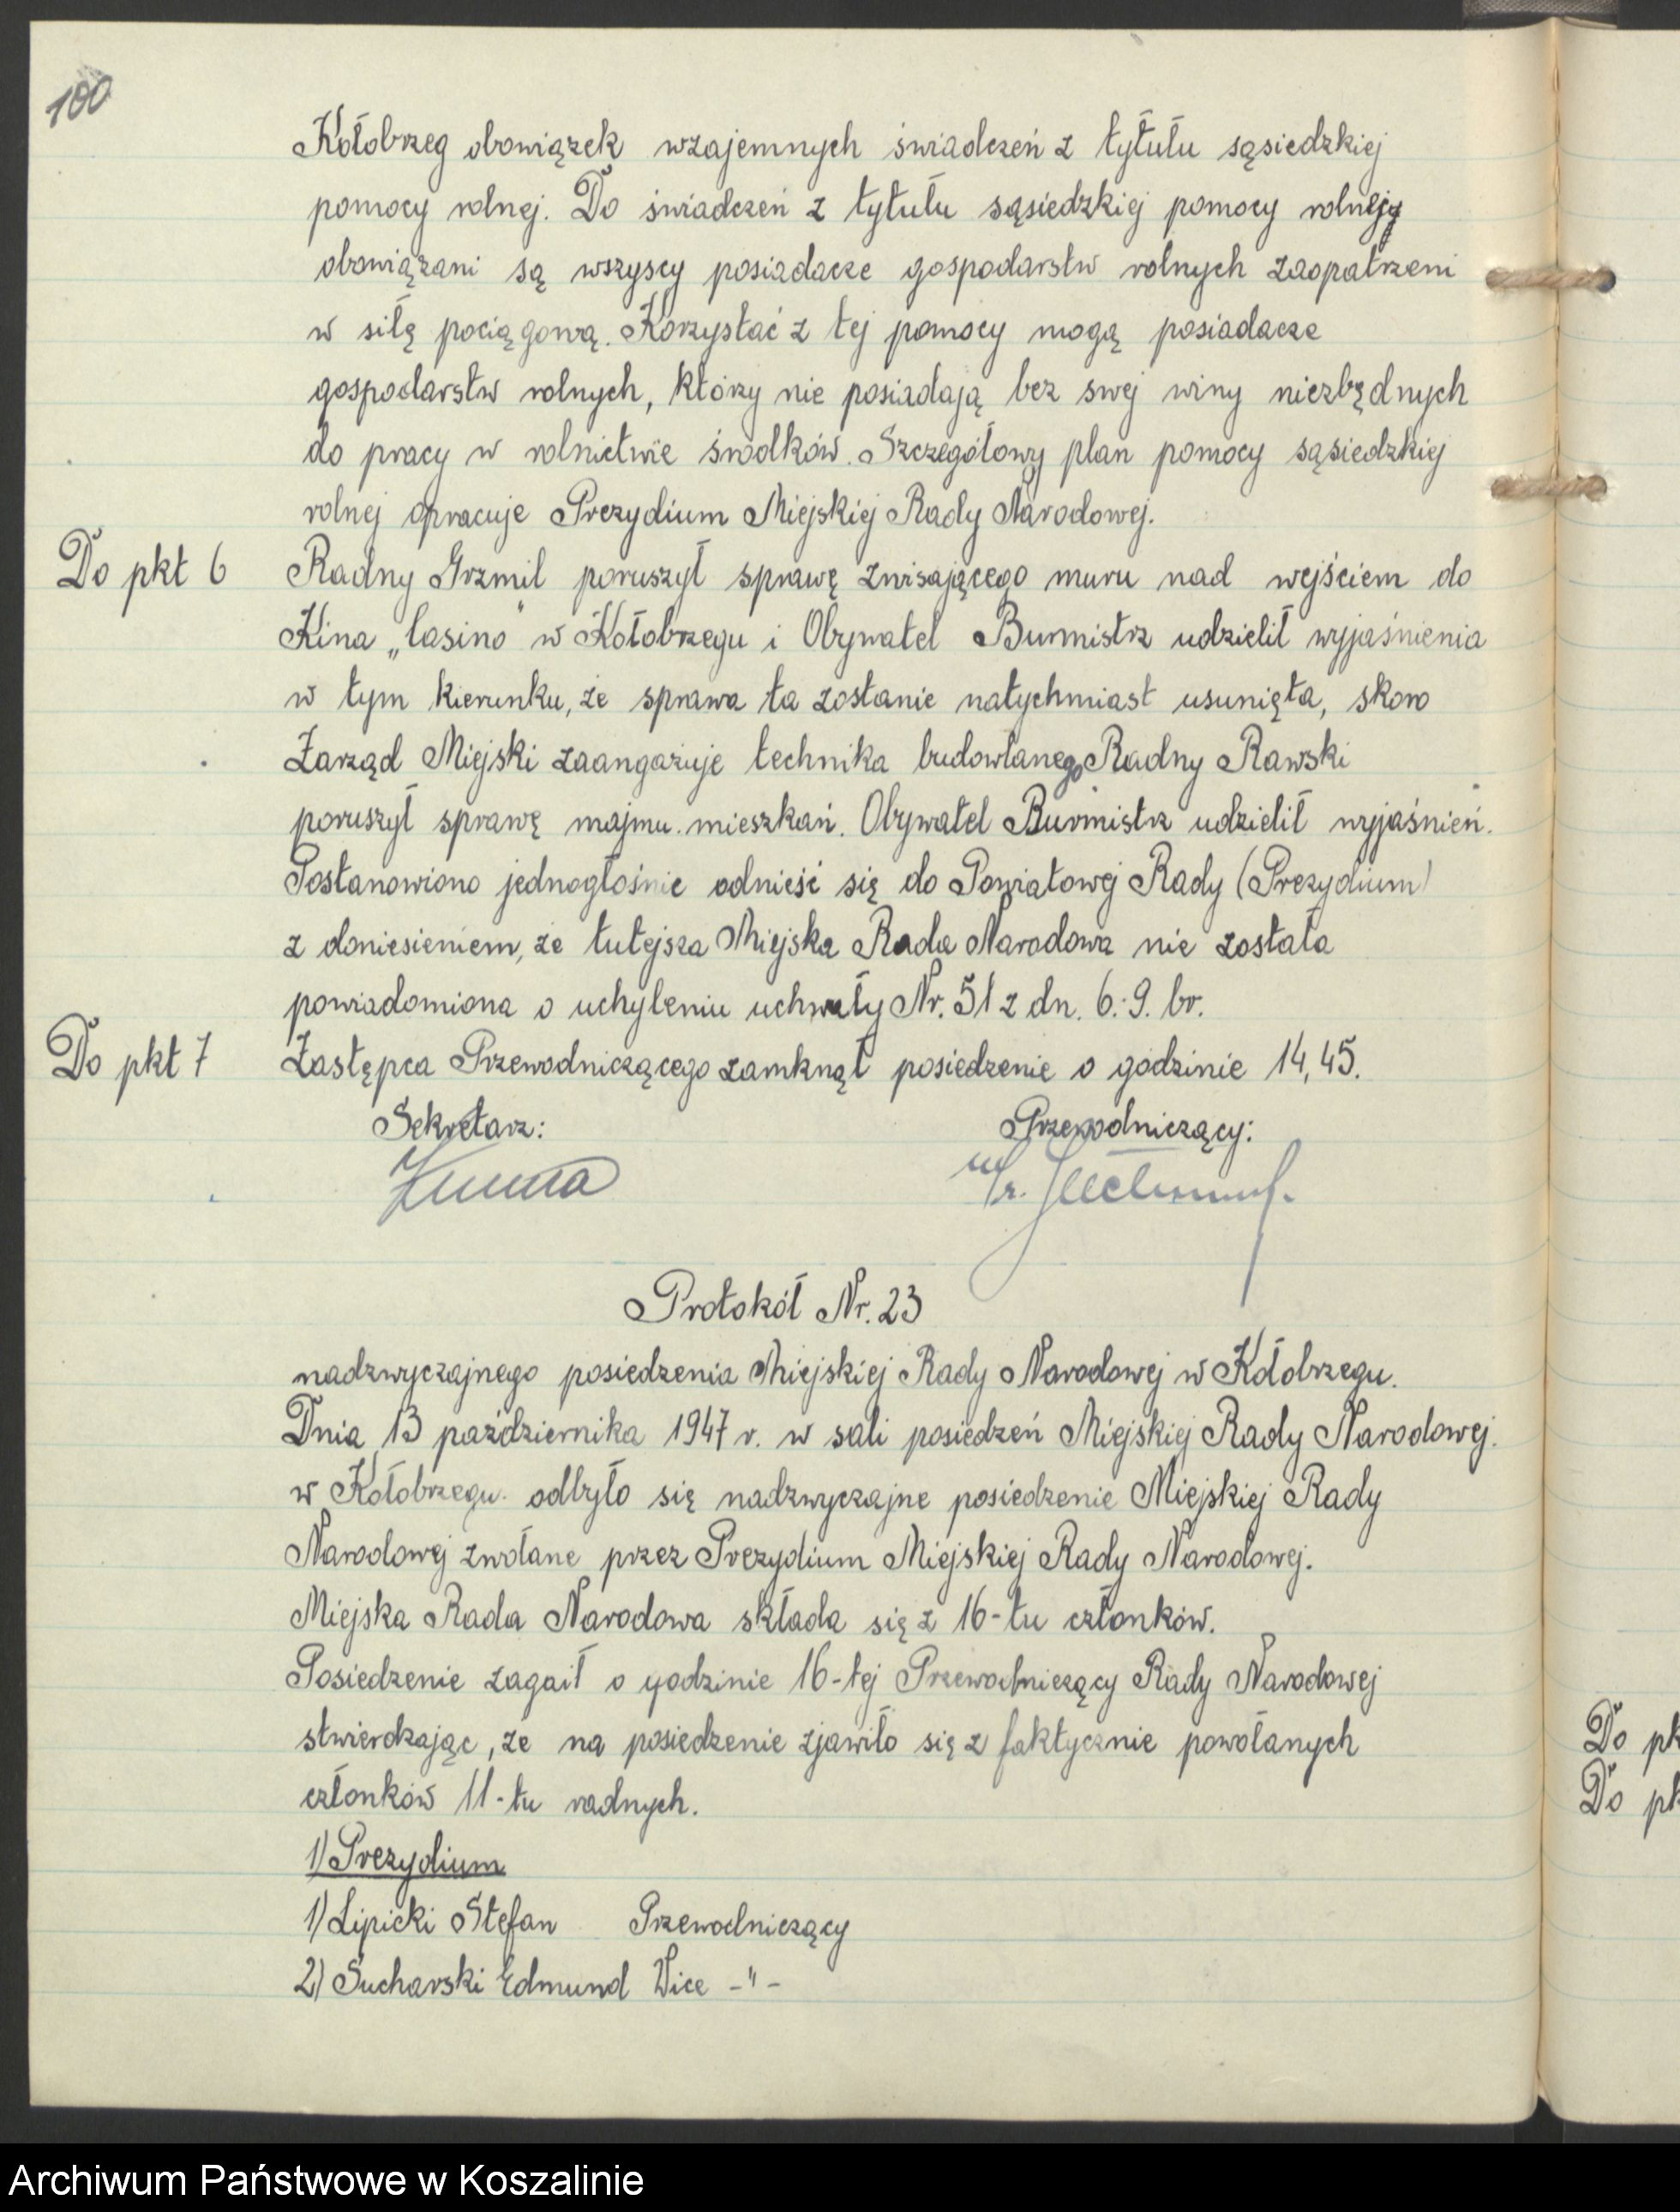 100
Kołobrzeg obowiązek wzajemnych świadczeń z tytułu sąsiedzkiej
pomocy rolnej. Do świadczeń z tytułu sąsiedzkiej pomocy rolnej
obowiązani są wszyscy posiadacze gospodarstw rolnych zaopatrzeni
w siłę pociągową. Korzystać z tej pomocy mogą posiadacze
gospodarstw rolnych, którzy nie posiadają bez swej winy niezbędnych
do pracy w rolnictwie środków. Szczegółowy plan pomocy sąsiedzkiej
rolnej opracuje Prezydium Miejskiej Rady Narodowej.
Do pkt 6 Radny Grzmil poruszył sprawę zwisającego muru nad wejściem do
Kina „Casino" w Kołobrzegu i Obywatel Burmistrz udzielił wyjaśnienia
w tym kierunku, że sprawa ta zostanie natychmiast usunięta, skoro
Zarząd Miejski zaangażuje technika budowlanego Radny Rawski
poruszył sprawę najmu mieszkań. Obywatel Burmistrz udzielił wyjaśnień.
Postanowiono jednogłośnie odnieść się do Powiatowej Rady (Prezydium)
z doniesieniem, że tutejsza Miejska Rada Narodowa nie została
powiadomiona o uchyleniu uchwały Nr. 51 z dn. 6.9. br.
Do pkt 7 Zastępca Przewodniczącego zamknął posiedzenie o godzinie 14,45.
Sekretarz: Przewodniczący:
Protokół Nr. 23
nadzwyczajnego posiedzenia Miejskiej Rady Narodowej w Kołobrzegu.
Dnia 13 października 1947 r. w sali posiedzeń Miejskiej Rady Narodowej.
w Kołobrzegu. odbyło się nadzwyczajne posiedzenie Miejskiej Rady
Narodowej zwołane przez Prezydium Miejskiej Rady Narodowej.
Miejska Rada Narodowa składa się z 16-tu członków.
Posiedzenie zagaił o godzinie 16-tej Przewodniczący Rady Narodowej
stwierdzając, że na posiedzenie zjawiło się z faktycznie powołanych
członków 11-tu radnych.
1) Prezydium
1) Lipicki Stefan Przewodniczący
2) Sucharski Edmund Vice -"-
Do pk
Do pk
Archiwum Państwowe w Koszalinie